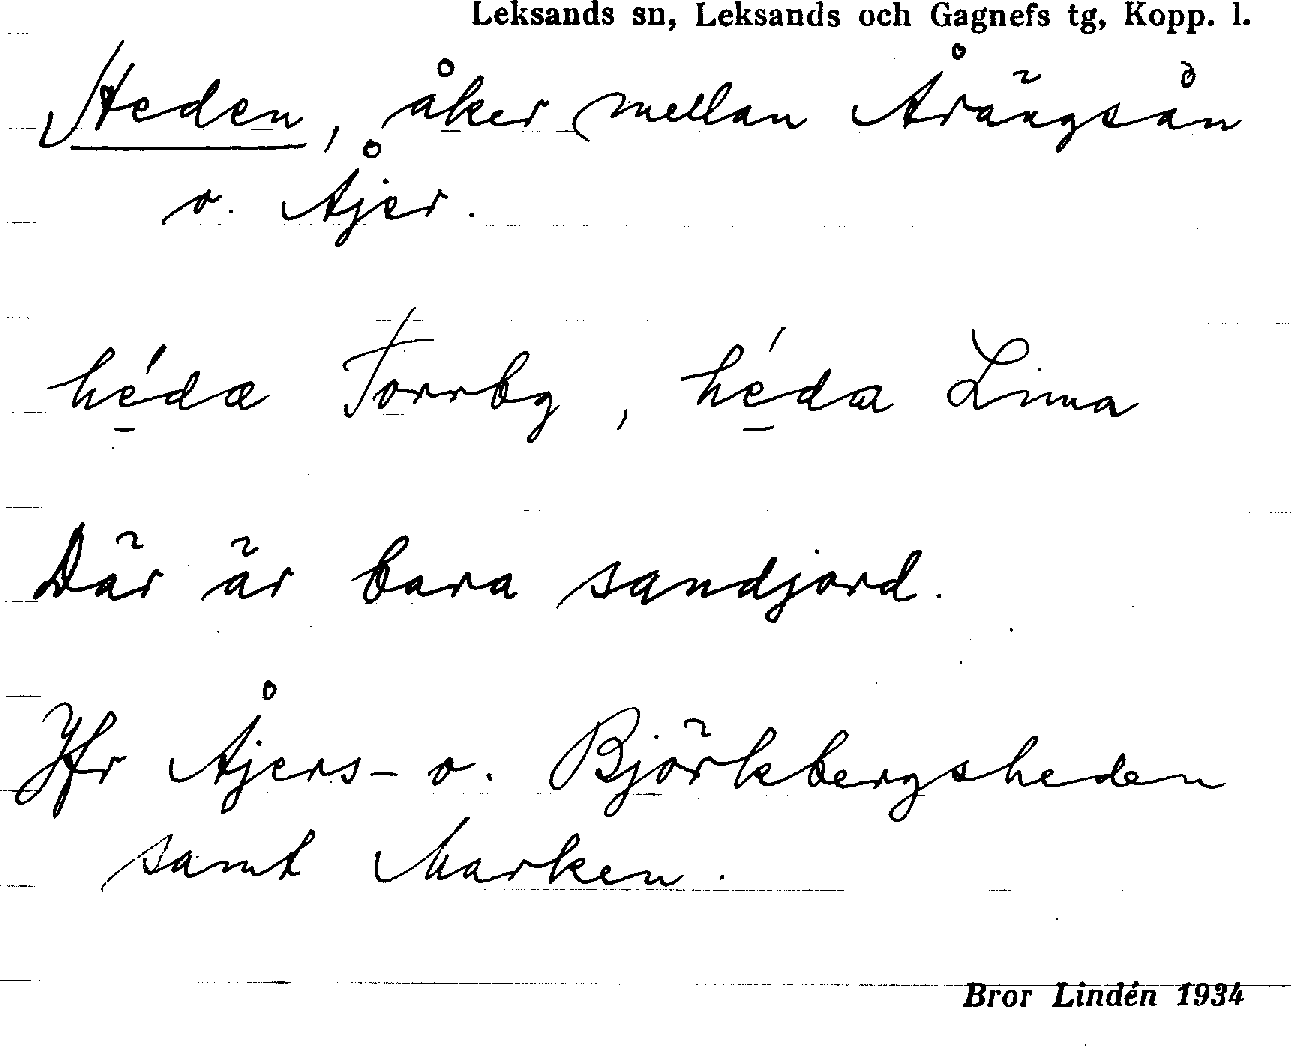 Leksands sn, Leksands och Gagnefs tg, Kopp. l.
Heden, åker mellan Årängsån
o. Åjer.
héda Torrby, héda Lima
Där är bara sandjord.
Jfr Åjers- o. Björkbergsheden
samt Marken.
Bror Lindén 1934